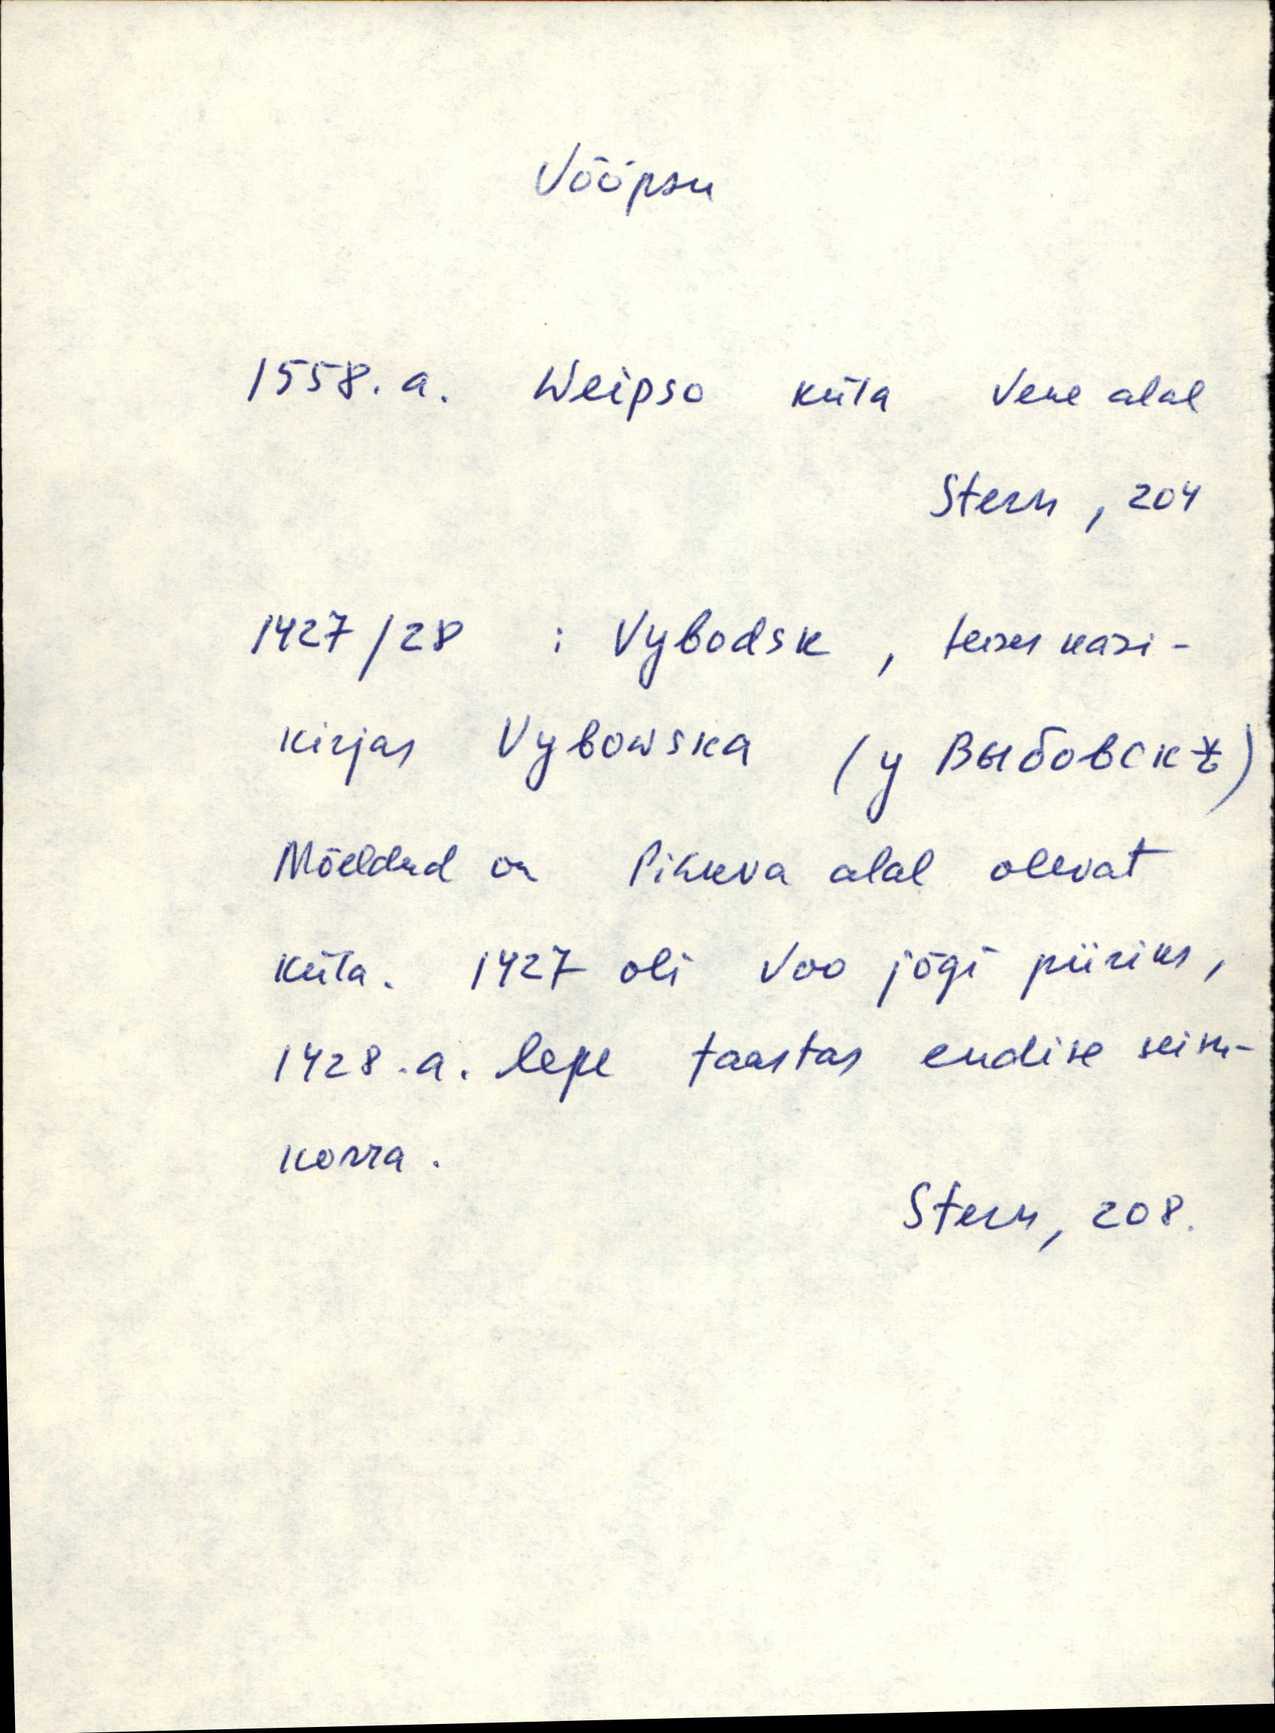 Vööpsu
1558. a. Weipso küla Vene alal
Stern, 204
1427/28 : Vybodsk, teises käsi-
kirjas Vybowska (у Выбовскѣ)
Mõeldud on Pihkva alal olevat
küla. 1427 oli Voo jõgi piiriks,
1428. a. lepe taastas endise seisu-
korra.
Stern, 208.